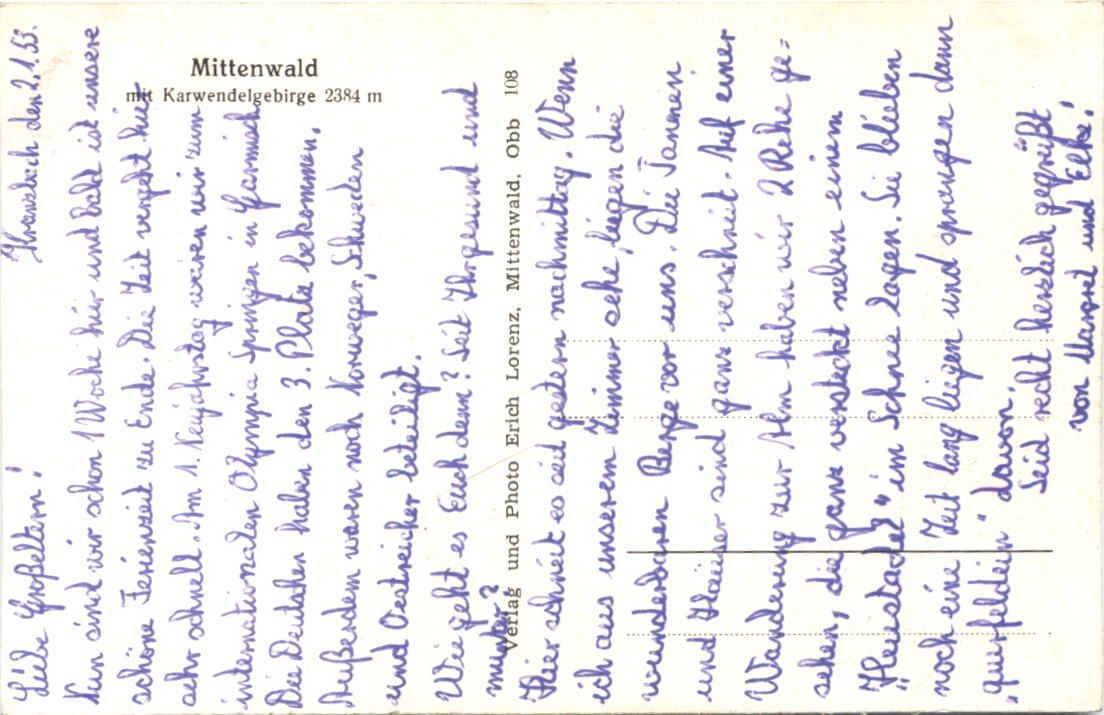 Mittenwald
mit Karwendelgebirge 2384 m
Verlag und Photo Erich Lorenz, Mittenwald, Obb 108
Krannbach den 2.1.53.
Liebe Großeltern!
Nun sind wir schon 1 Woche hier und bald ist unsere
schöne Ferienzeit zu Ende. Die Zeit vergeht hier
sehr schnell. Am 1. Neujahrstag waren wir zum
internationalen Olympia Springen in Garmisch
Die Deutschen haben den 3. Platz bekommen.
Außerdem waren noch Norweger, Schweden
und Oestreicher beteiligt.
Wie geht es Euch denn? Seit Ihr gesund und
munter?
Hier schneit es seit gestern nachmittag. Wenn
ich aus unserem Zimmer sehe, liegen die
wunderbaren Berge vor uns. Die Tannen
und Häuser sind ganz verschneit. Auf einer
Wanderung zur Alm haben wir 2 Rehe ge=
sehen, die ganz versteckt neben einem
"Heustadel" im Schnee lagen. Sie blieben
noch eine Zeit lang liegen und sprangen dann
"querfeldein" davon.
Seid recht herzlich gegrüßt
von Margret und Elke!